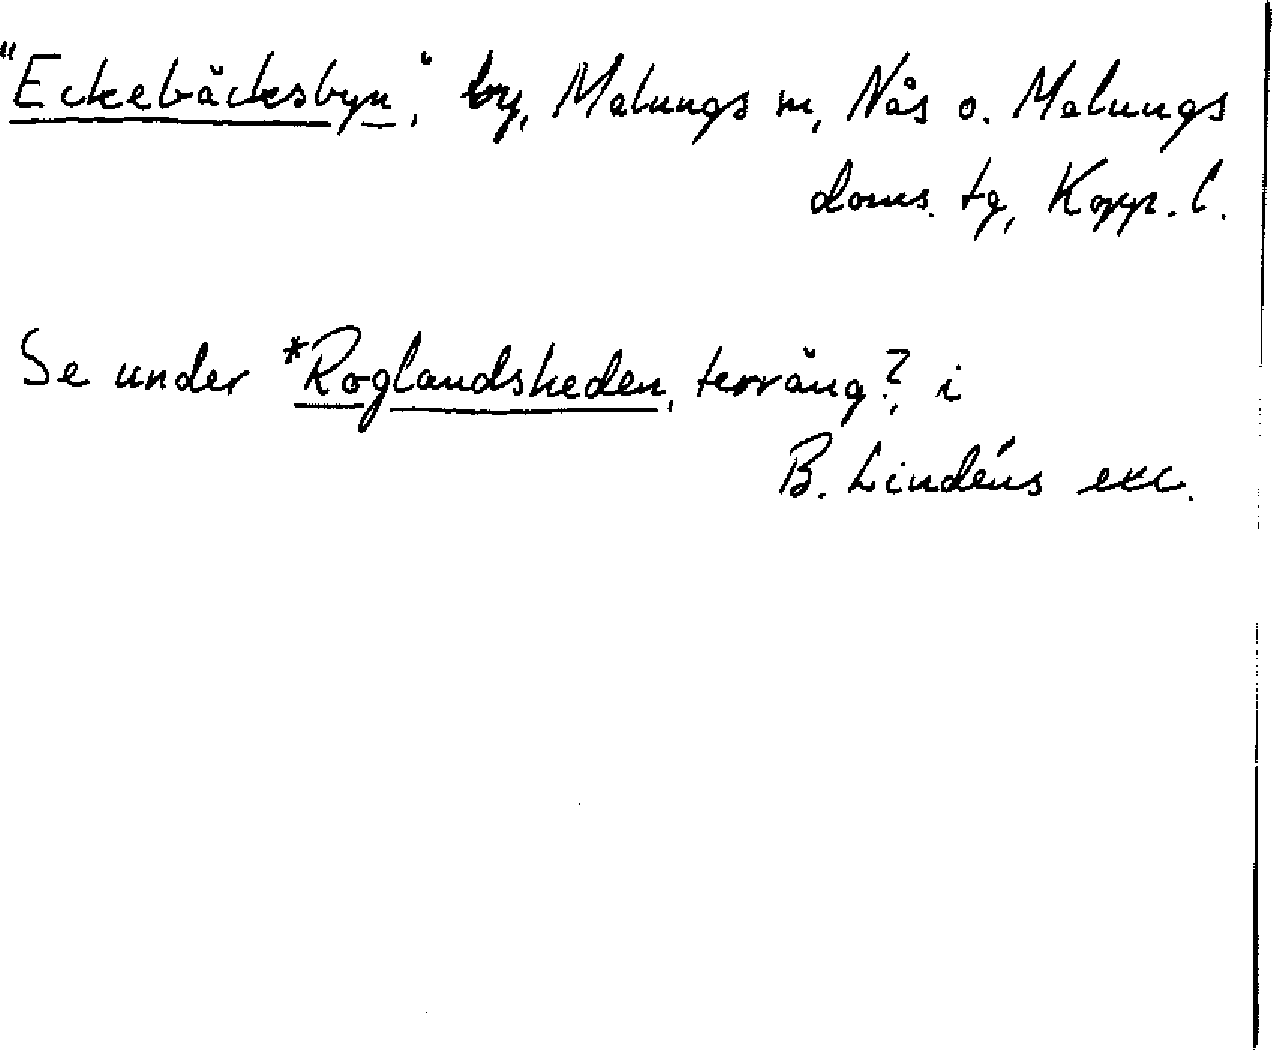 "Eckebäcksbyn", by, Malungs m, Nås o. Malungs
doms. tg, Kopp. l.
Se under *Roglandsheden, terräng?, i
B. Lindéns exc.